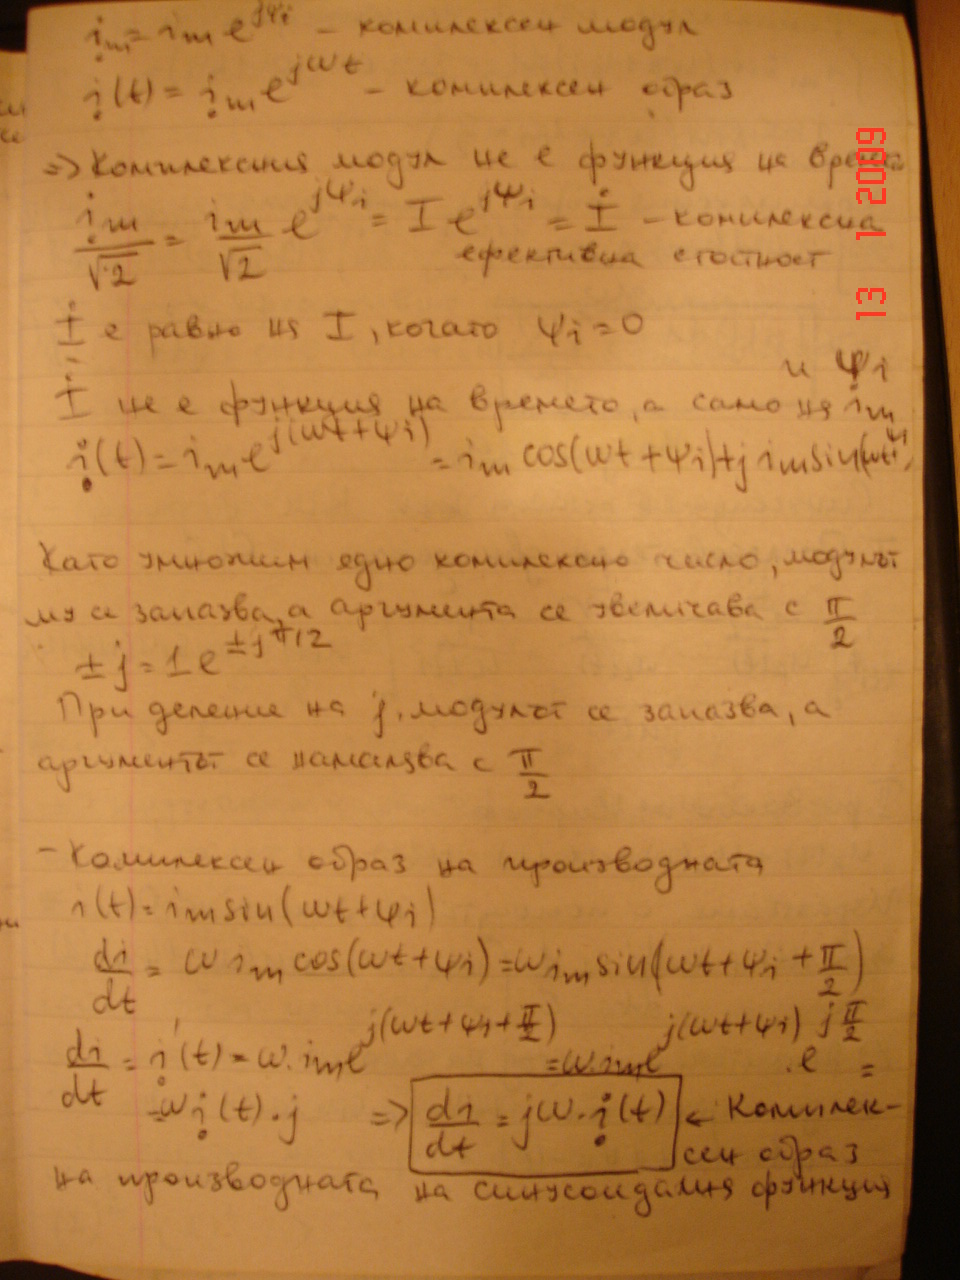 i̤m = im e^jψi – комплексен модул
i̤(t) = i̤m e^jωt – комплексен образ
=> Комплексния модул не е функция на времето
i̤m/√2 = im/√2 e^jψi = I e^jψi = İ – комплексна
ефективна стойност
İ е равно на I, когато ψi = 0
и ψi
İ не е функция на времето, а само на im
i̤(t) = im e^j(ωt+ψi) = im cos(ωt+ψi)+j im sin(ωt+ψi)
Като умножим едно комплексно число, модулът
му се запазва, а аргумента се увеличава с π/2
±j = 1e^±jπ/2
При деление на j, модулът се запазва, а
аргументът се намалява с π/2
– Комплексен образ на производната
i(t) = im sin(ωt+ψi)
di/dt = ω im cos(ωt+ψi) = ω im sin(ωt+ψi+π/2)
di/dt = i̤'(t) = ω.im e^j(ωt+ψi+π/2) = ω.im e^j(ωt+ψi) .e^jπ/2 =
= ω i̤(t).j => di/dt = jω.i̤(t) ← Комплек-
сен образ
на производната на синусоидалня функция
13 1 2009